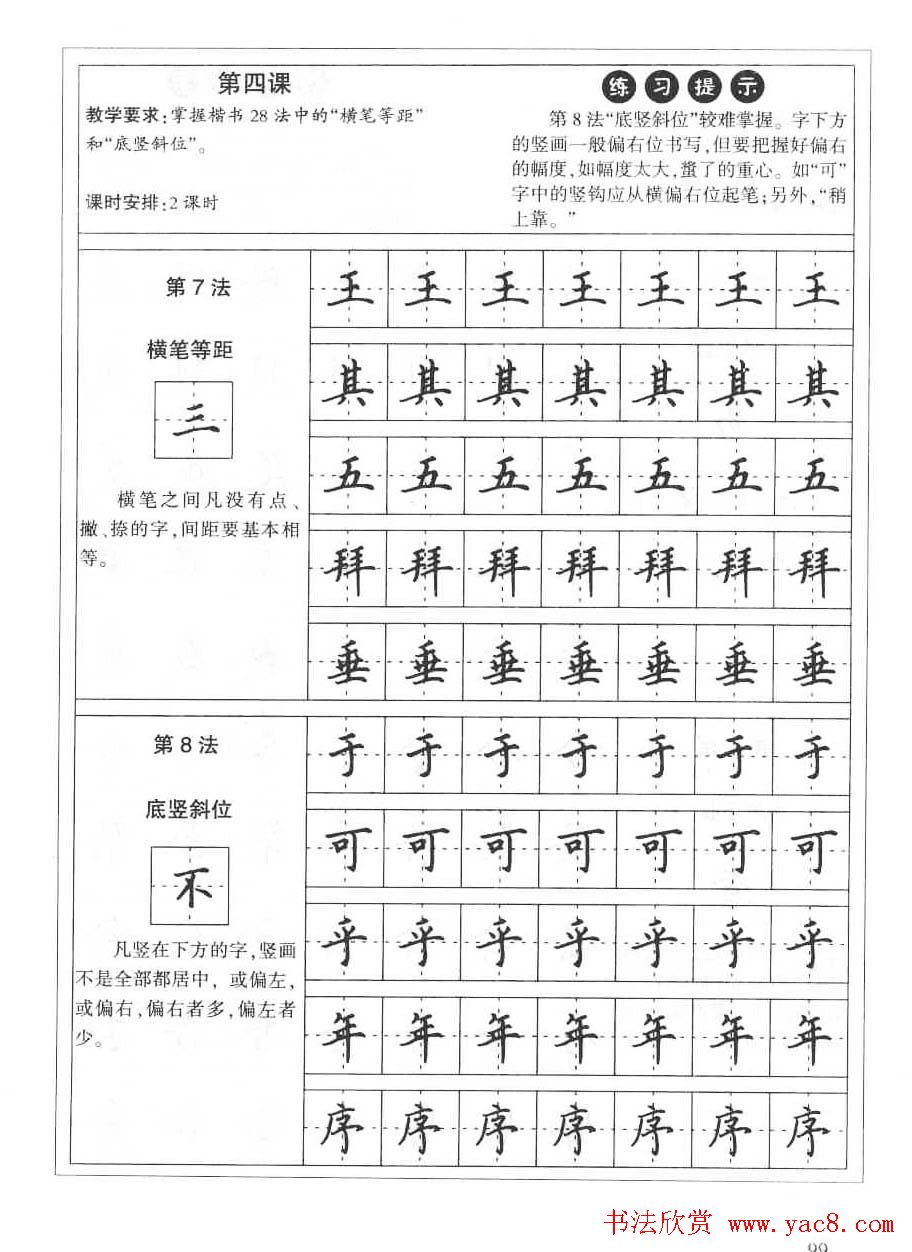 第四课
教学要求:掌握楷书28法中的“横笔等距”
和“底竖斜位”。
课时安排:2课时
练习提示
第8法“底竖斜位”较难掌握。字下方
的竖画一般偏右位书写,但要把握好偏右
的幅度,如幅度太大,蜇了的重心。如“可”
字中的竖钩应从横偏右位起笔;另外,“稍
上靠。”
第7法
横笔等距
三
横笔之间凡没有点、
撇、捺的字,间距要基本相
等。
王王王王王王王
其其其其其其其
五五五五五五五
拜拜拜拜拜拜拜
垂垂垂垂垂垂垂
第8法
底竖斜位
不
凡竖在下方的字,竖画
不是全部都居中,或偏左,
或偏右,偏右者多,偏左者
少。
于于于于于于于
可可可可可可可
乎乎乎乎乎乎乎
年年年年年年年
序序序序序序序
书法欣赏 www.yac8.com